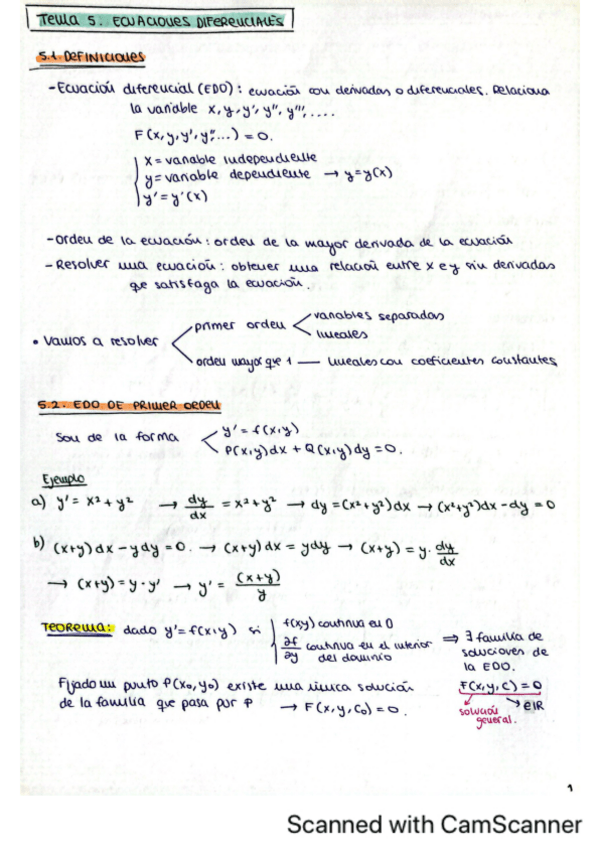 TEMA 5: ECUACIONES DIFERENCIALES
5.1. DEFINICIONES
- Ecuación diferencial (EDO): ecuación con derivadas o diferenciales. Relaciona
la variable x, y, y', y'', y''', ....
F(x, y, y', y'', ...) = 0.
x = variable independiente
y = variable dependiente → y = y(x)
y' = y'(x)
- Orden de la ecuación: orden de la mayor derivada de la ecuación
- Resolver una ecuación: obtener una relación entre x e y sin derivadas
que satisfaga la ecuación.
• Vamos a resolver
primer orden
variables separadas
lineales
orden mayor que 1 — lineales con coeficientes constantes
5.2. EDO DE PRIMER ORDEN
Son de la forma
y' = f(x,y)
P(x,y)dx + Q(x,y)dy = 0.
Ejemplo
a) y' = x² + y² → dy/dx = x² + y² → dy = (x² + y²)dx → (x² + y²)dx - dy = 0
b) (x+y)dx - ydy = 0. → (x+y)dx = ydy → (x+y) = y · dy/dx
→ (x+y) = y · y' → y' = (x+y)/y
TEOREMA: dado y' = f(x,y) si
f(xy) continua en D
∂f/∂y continua en el interior
del dominio
⇒ ∃ familia de
solucioven de
la EDO.
Fijado un punto P(x₀, y₀) existe una única solución
de la familia que pasa por P → F(x, y, C₀) = 0.
F(x, y, C) = 0
solución
general.
∈ℝ
1
Scanned with CamScanner